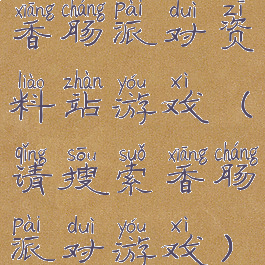 xiāng cháng pài duì zī
香肠派对资
liào zhàn yóu xì
料站游戏（
qǐng sōu suǒ xiāng cháng
请搜索香肠
pài duì yóu xì
派对游戏）